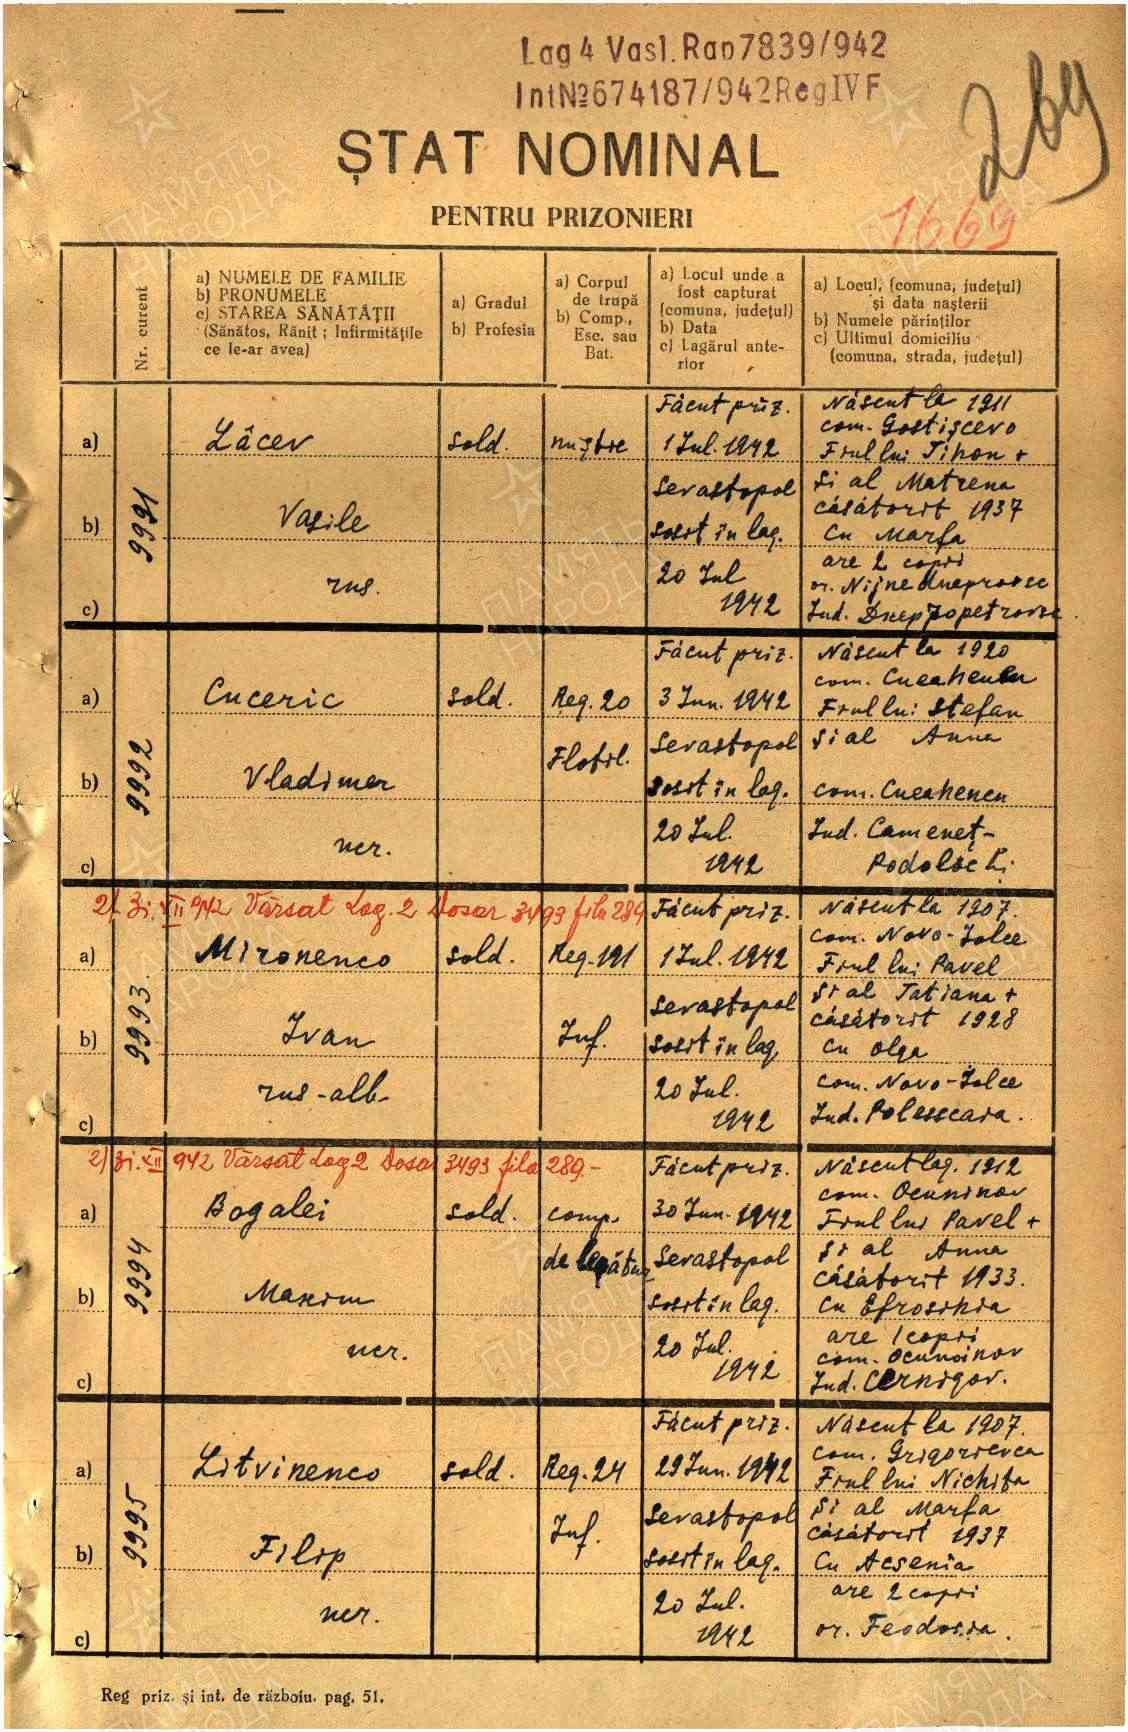 Lag 4 Vasl. Rap 7839/942
Int№674187/942 Reg IV F
269
1669
ȘTAT NOMINAL
PENTRU PRIZONIERI
Nr. curent
a) NUMELE DE FAMILIE
b) PRONUMELE
c) STAREA SĂNĂTĂȚII
(Sănătos, Rănit ; Infirmitățile
ce le-ar avea)
a) Gradul
b) Profesia
a) Corpul
de trupă
b) Comp.,
Esc. sau
Bat.
a) Locul unde a
fost capturat
(comuna, județul)
b) Data
c) Lagărul ante-
rior
a) Locul, (comuna, județul)
și data nașterii
b) Numele părinților
c) Ultimul domiciliu
(comuna, strada, județul)
9991
a) Lâcev
b) Vasile
rus.
c)
sold.
nu știe
Făcut priz.
1 Iul. 1942
Sevastopol
sosit în lag.
20 Iul
1942
Născut la 1911
com. Gostișcevo
Fiul lui Tihon +
Și al Matrena
căsătorit 1937
Cu Marfa
are 2 copii
or. Nijnedneprovsc
Jud. Dnepropetrovsc
9992
a) Cuceric
b) Vladimer
ucr.
c)
sold.
Reg. 20
Flotil.
Făcut priz.
3 Iun. 1942
Sevastopol
Sosit în lag.
20 Iul.
1942
Născut la 1920
com.
Fiul lui Stefan
Și al Anna
com.
Jud. Cameneț-
Podolschi
2/ 3i.XII 942 Vărsat Lag. 2 Dosar 3493 fila 289
9993.
a) Mironenco
b) Ivan
rus-alb.
c)
sold.
Reg. 191
Inf.
Făcut priz.
1 Iul. 1942
Sevastopol
Sosit în lag
20 Iul.
1942
Născut la 1907.
com. Novo-Iolce
Fiul lui Pavel
Și al Tatiana +
căsătorit 1928
Cu Olga
com. Novo-Iolce
Jud. Polesscaia.
2/ 3i.XII 942 Vărsat Lag 2 Dosar 3493 fila 289.-
9994
a) Bogalei
b) Maxim
ucr.
c)
sold.
comp.
de legătur
Făcut priz.
30 Iun. 1942
Sevastopol
sosit în lag.
20 Iul.
1942
Născut lag. 1912
com. Ocuninov
Fiul lui Pavel +
Și al Anna
căsătorit 1933.
Cu Efrosinia
are 1 copii
com. Ocuninov
Jud. Cernigov.
9995
a) Litvinenco
b) Filip
ucr.
c)
sold.
Reg. 24
Inf.
Făcut priz.
29 Iun. 1942
Sevastopol
sosit în lag.
20 Iul.
1942
Născut la 1907.
com. Grigorievca
Fiul lui Nichita
Și al Marfa
căsătorit 1937
Cu Acsenia
are 2 copii
or. Feodosia.
Reg priz. și int. de războiu. pag. 51.
ПАМЯТЬ
НАРОДА